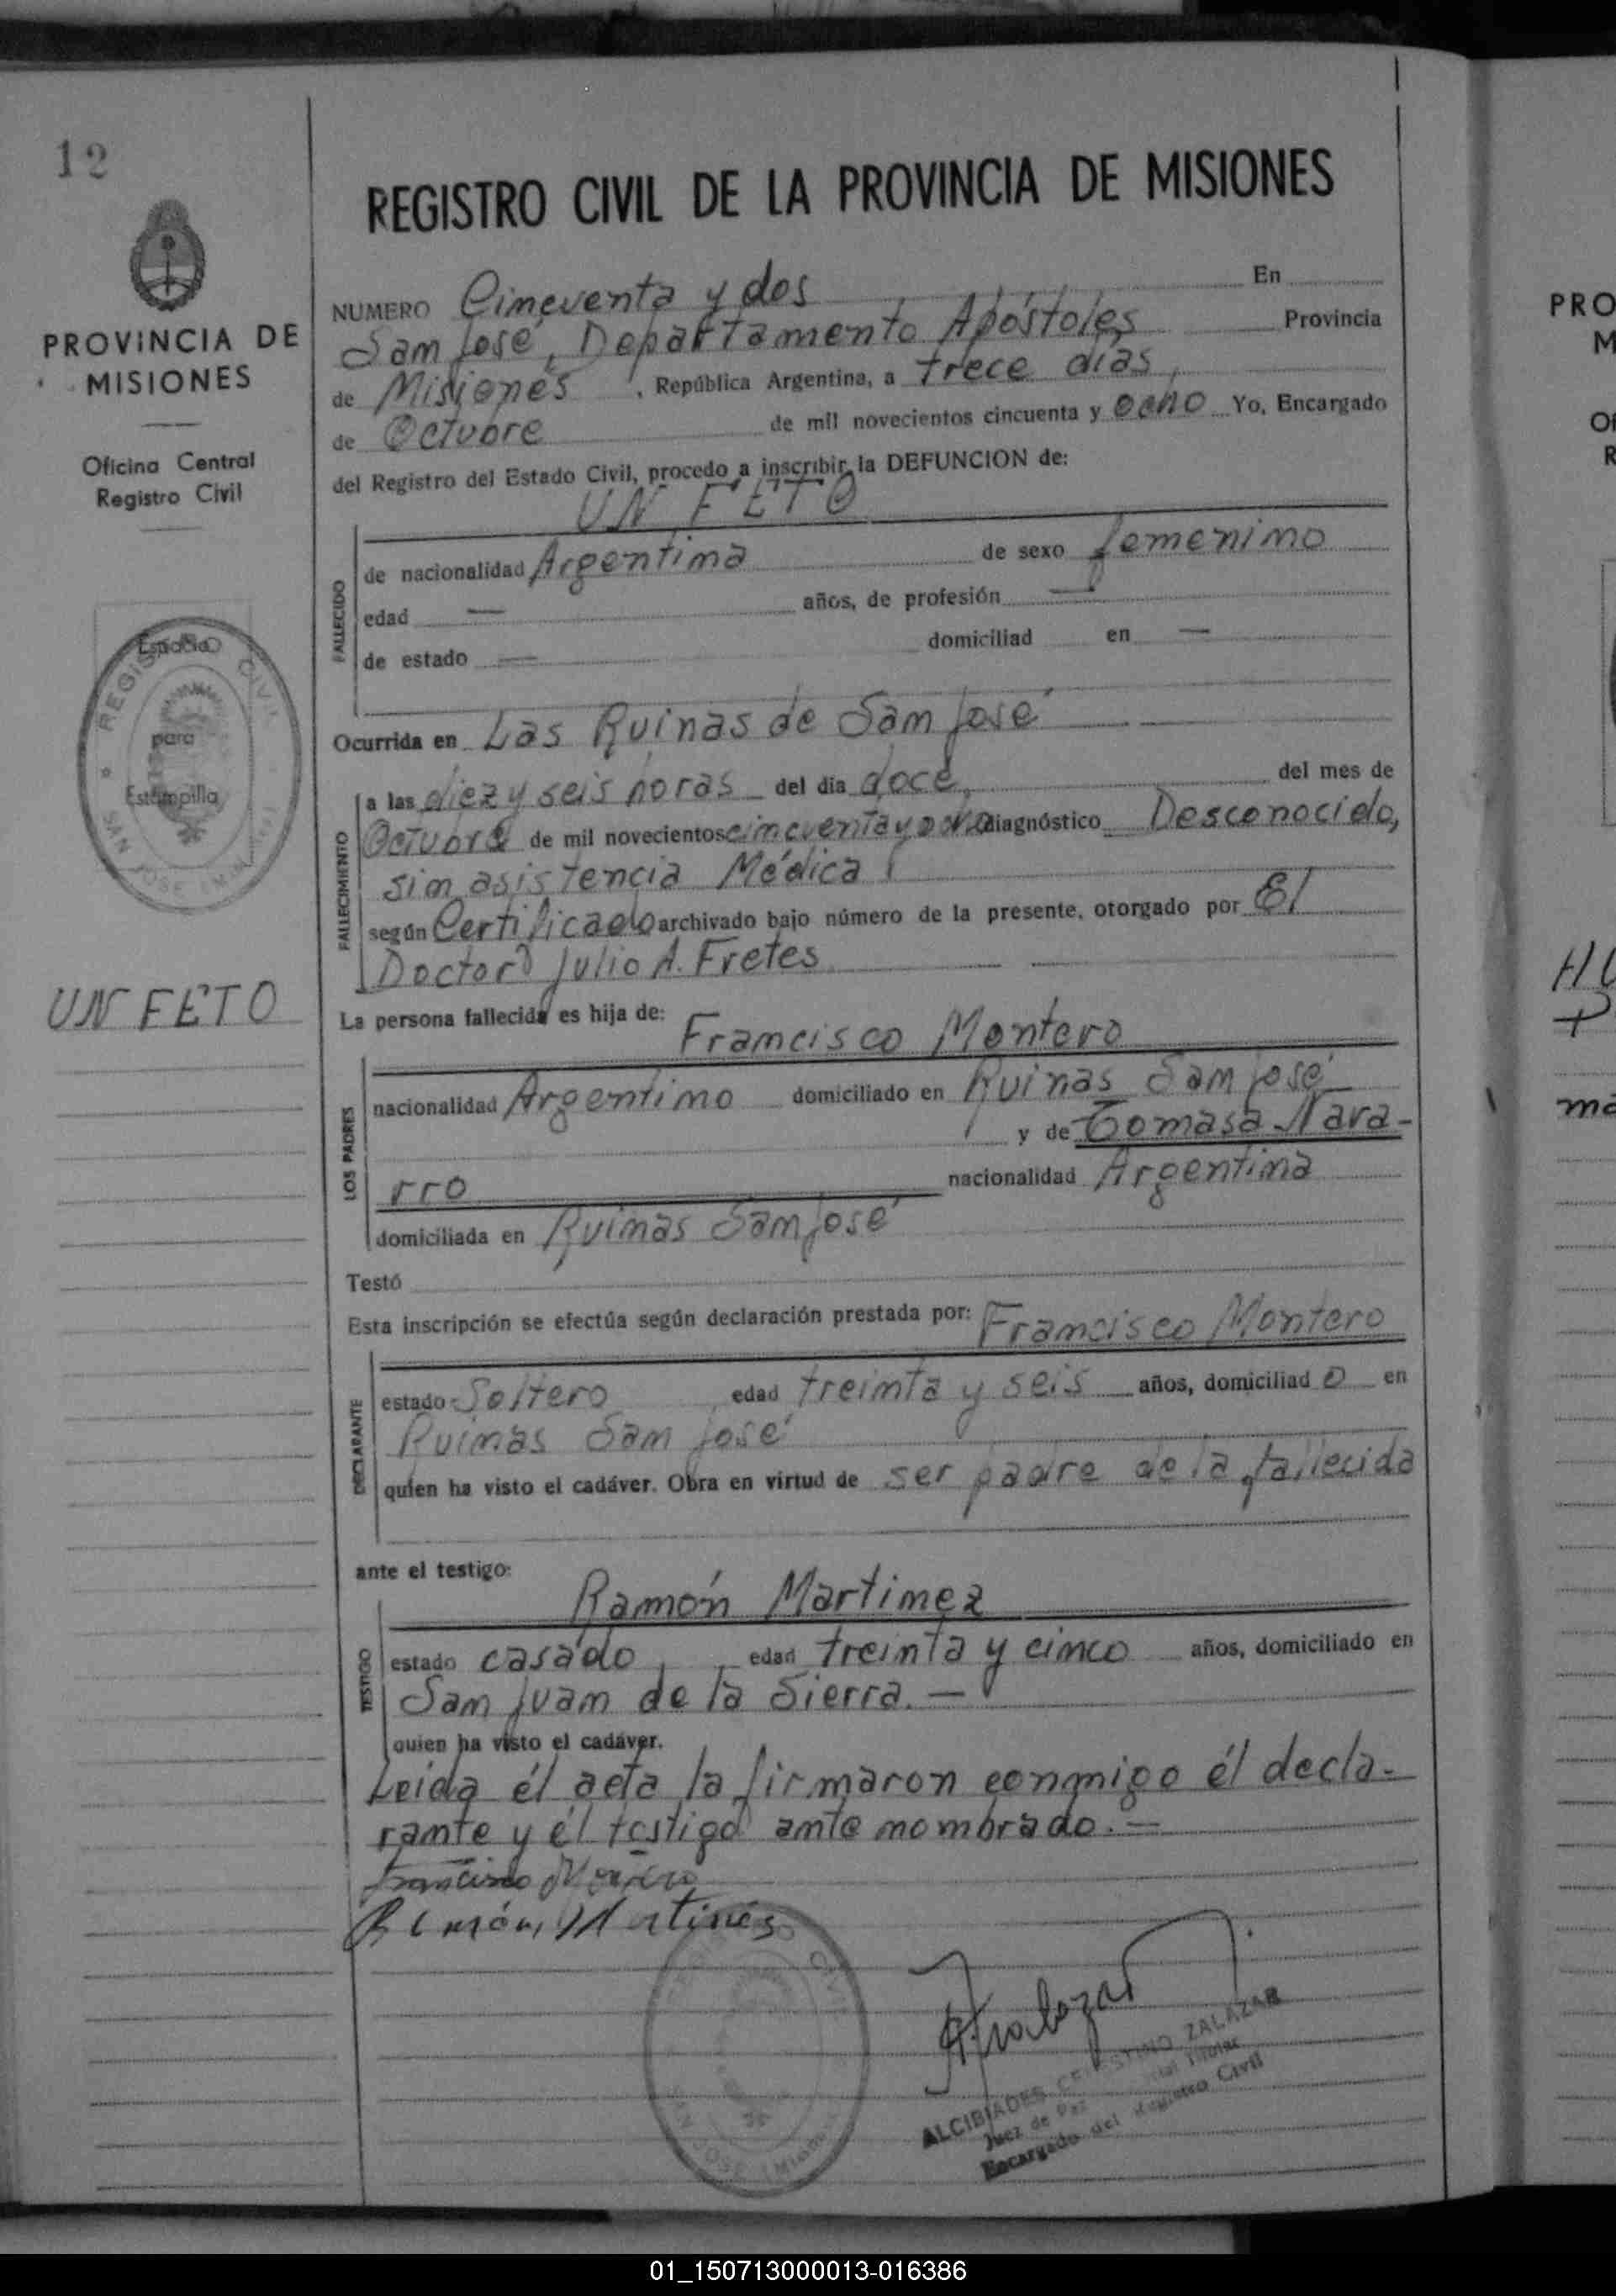 12
PROVINCIA DE
MISIONES
Oficina Central
Registro Civil
Espacio
para
Estampilla
REGISTRO CIVIL
SAN JOSE
UN FETO
REGISTRO CIVIL DE LA PROVINCIA DE MISIONES
NUMERO Cincuenta y dos En
San José, Departamento Apóstoles Provincia
de Misiones, República Argentina, a trece días,
de Octubre de mil novecientos cincuenta y ocho Yo, Encargado
del Registro del Estado Civil, procedo a inscribir la DEFUNCION de:
UN FETO
FALLECIDO
de nacionalidad Argentina de sexo femenino
edad — años, de profesión —
de estado — domiciliad en —
Ocurrida en Las Ruinas de San José
FALLECIMIENTO
a las diez y seis horas del día doce, del mes de
Octubre de mil novecientos cincuenta y ocho diagnóstico Desconocido,
sin asistencia Médica
según Certificado archivado bajo número de la presente, otorgado por El
Doctor Julio A. Fretes
La persona fallecida es hija de:
Francisco Montero
LOS PADRES
nacionalidad Argentino domiciliado en Ruinas San José
y de Tomasa Nava-
rro nacionalidad Argentina
domiciliada en Ruinas San José
Testó
Esta inscripción se efectúa según declaración prestada por: Francisco Montero
DECLARANTE
estado Soltero edad treinta y seis años, domiciliad o en
Ruinas San José
quien ha visto el cadáver. Obra en virtud de ser padre de la fallecida
ante el testigo:
Ramón Martinez
TESTIGO
estado casado, edad treinta y cinco años, domiciliado en
San Juan de la Sierra. —
quien ha visto el cadáver.
Leida él acta la firmaron conmigo él decla-
rante y él testigo ante nombrado. —
Francisco Montero
Ramón Martinés
SAN JOSE (Misiones)
AZalazar
ALCIBIADES CELESTINO ZALAZAR
Juez de Paz Titular
Encargado del Registro Civil
PRO
M
01_150713000013-016386